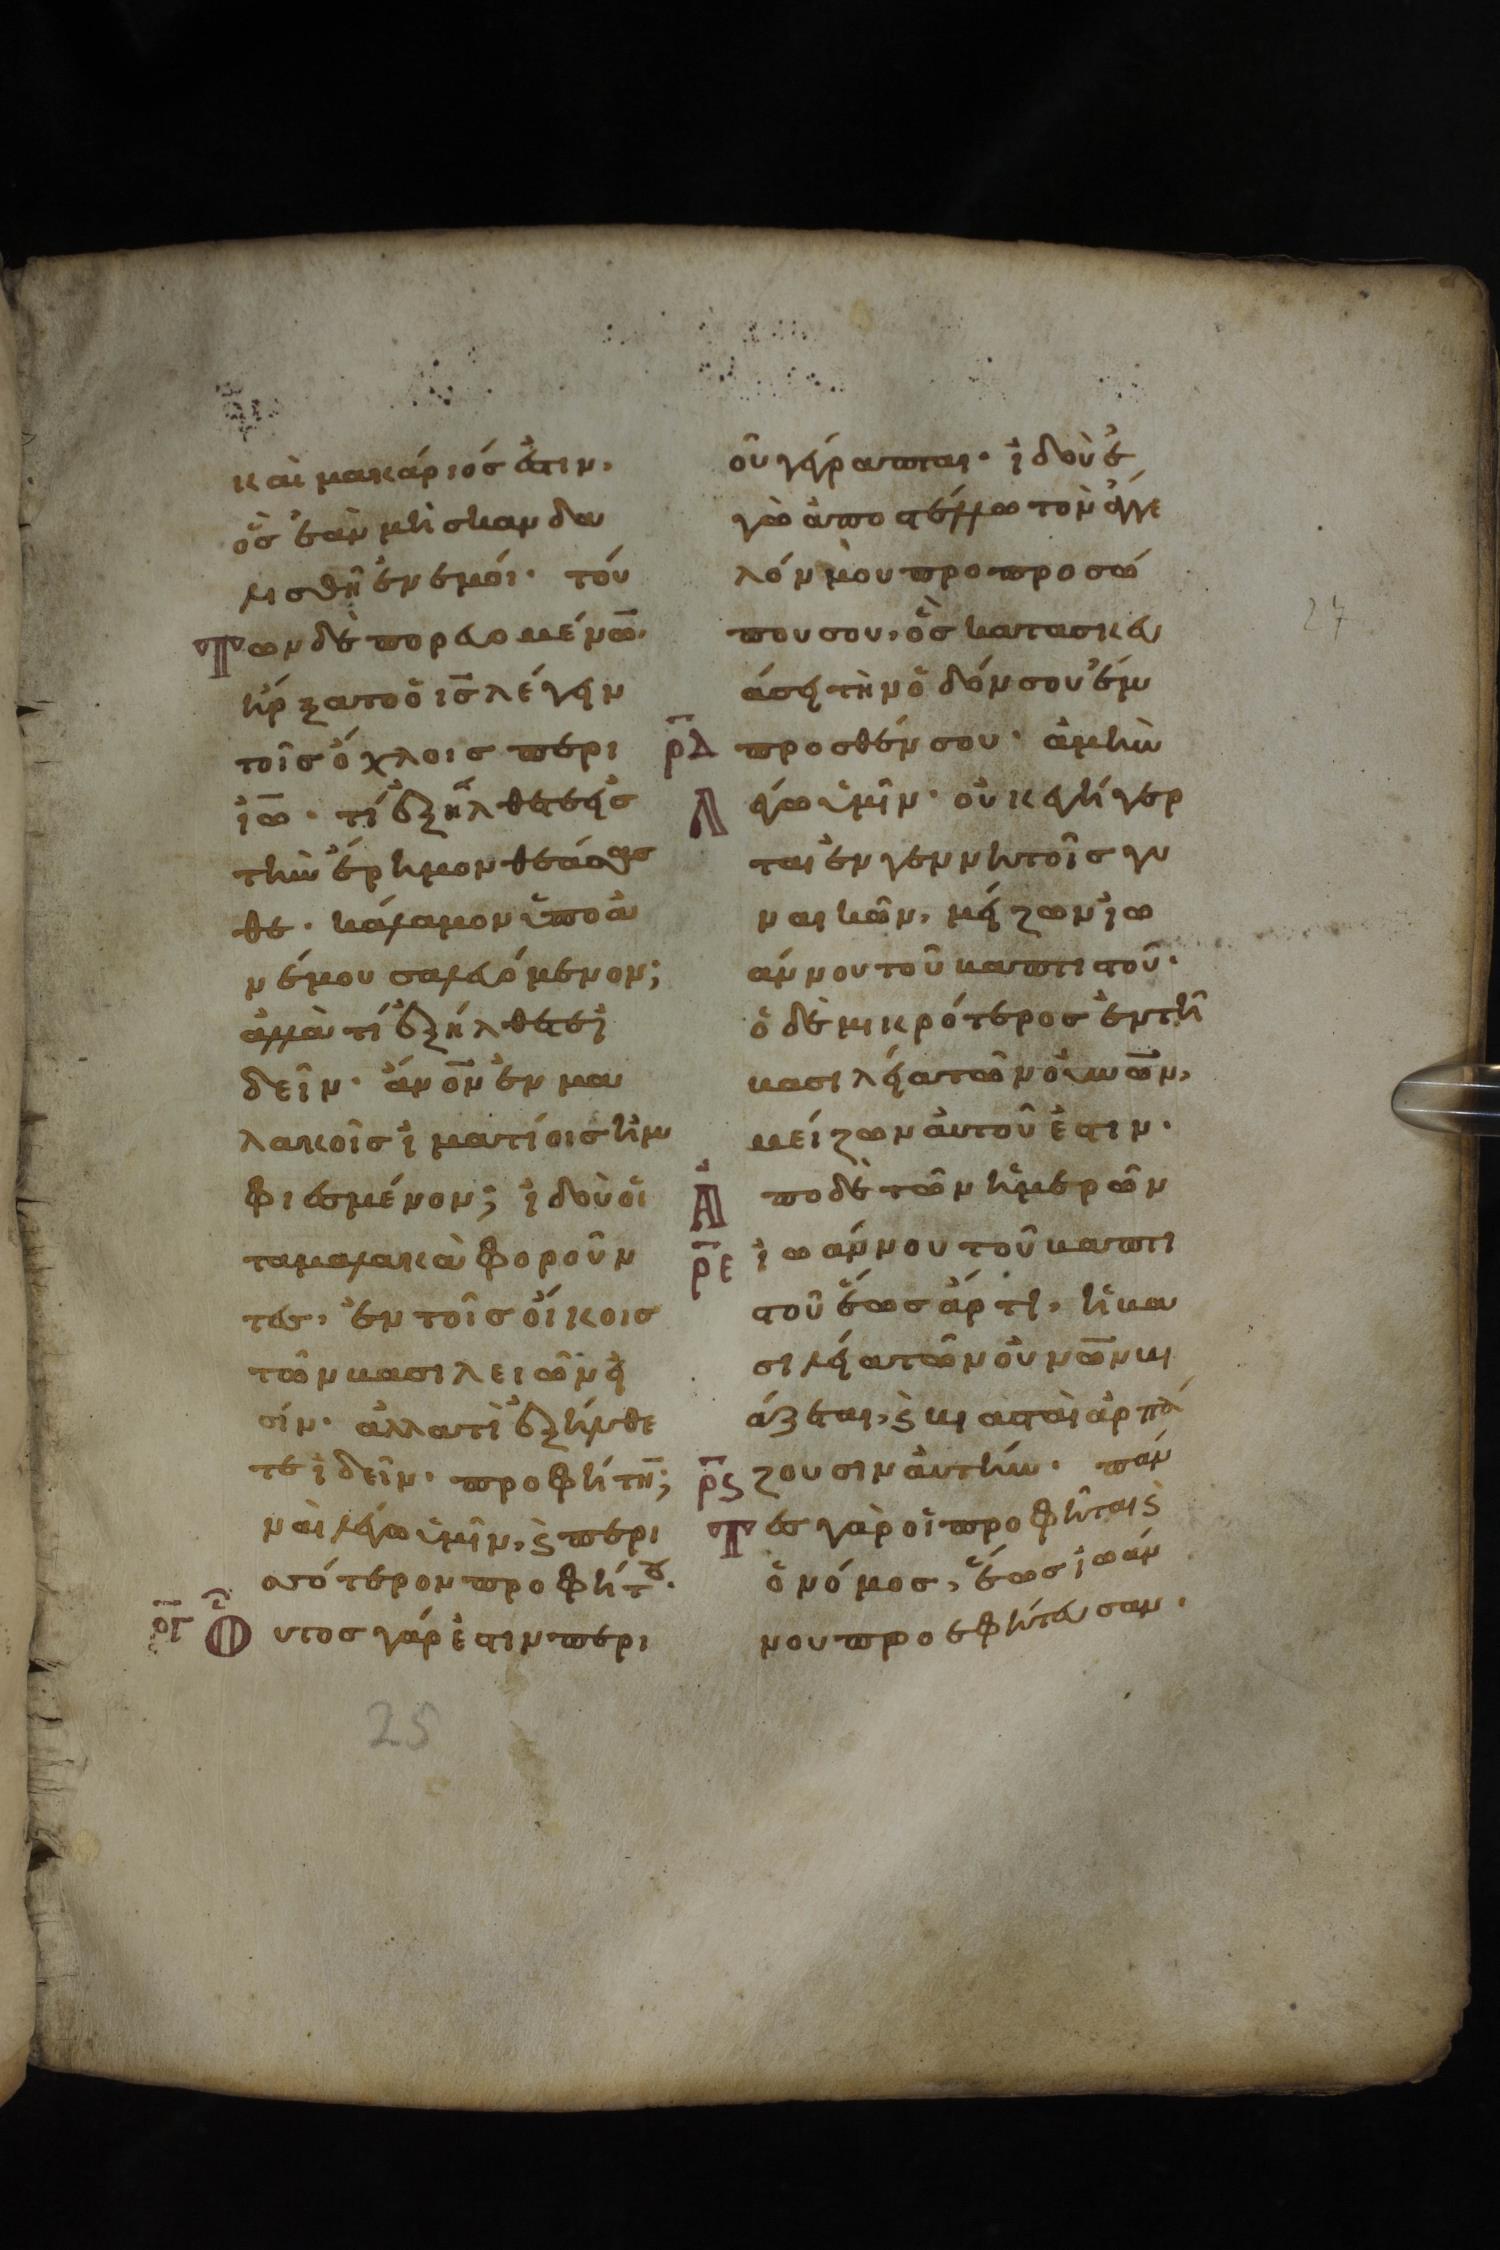 και μακάριός ἐστιν,
ὃς ἐὰν μὴ σκανδα
λισθῆ ἐν ἐμοί· τού
Των δὲ πορευομένω̅,
ἤρξατο ὁ ι̅σ̅ λέγειν
τοῖς ὄχλοις περι
ἰω̅· τί ἐξήλθετε εἰς
τὴν ἔρημον θεάσασ
θε· κάλαμον ὑπο ἀ
νέμου σαλευόμενον;
ἀλλὰ τί ἐξήλθετε ἰ
δεῖν· ἄν̅ο̅ν̅ ἐν μα
λακοῖς ἱματίοις ἠμ
φιεσμένον; ἰδοὺ οἱ
τα μαλακὰ φοροῦν
τες, ἐν τοῖς οἴκοις
τῶν βασιλειῶν εἰ
σίν· ἀλλα τὶ ἐξήλθε
τε ἰδεῖν· προφήτη̅;
ναὶ λέγω ὑμῖν, ϛ περι
σσότερον προφήτου·
ρ̅γ̅ Οὗτος γάρ ἐστιν περι
οὗ γέγραπται· ἰδοὺ ἐ
γὼ ἀποστέλλω τὸν ἄγγε
λόν μου προ προσώ
που σου, ὃς κατασκευ
άσει τὴν ὁδόν σου ἔμ
ρ̅δ̅ προσθέν σου· ἀμὴν
Λέγω ὑμῖν· οὐκ ἐγήγερ
ται ἐν γεννητοῖς γυ
ναικῶν, μείζων ἰω
άννου τοῦ βαπτιστοῦ·
ὁ δὲ μικρότερος ἐν τῆ
βασιλεία τῶν οὐνω̅ν,
μείζων αὐτοῦ ἐστιν·
Ἀπο δὲ τῶν ἡμερῶν
ρ̅ε̅ ἰωάννου τοῦ βαπτι
στοῦ ἕως ἄρτι, ἡ βα
σιλεία τῶν οὐνω̅ν βι
άζεται, ϛ βιασταὶ ἁρπά
ρ̅ϛ̅ ζουσιν αὐτήν· πάν
Τες γὰρ οἱ προφῆται ϛ
ὁ νόμος, ἕως ἰωάν
νου προεφήτευσαν.
27
25